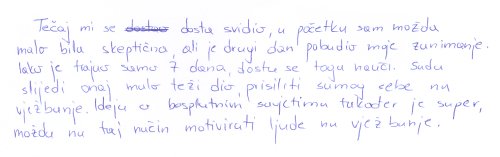 Tečaj mi se dosta svidio, u početku sam možda
malo bila skeptična, ali je drugi dan pobudio moje zanimanje.
Iako je trajao samo 7 dana, dosta se toga nauči. Sada
slijedi onaj malo teži dio, prisiliti samog sebe na
vježbanje. Ideja o besplatnim savjetima također je super,
možda na taj način motivirati ljude na vježbanje.